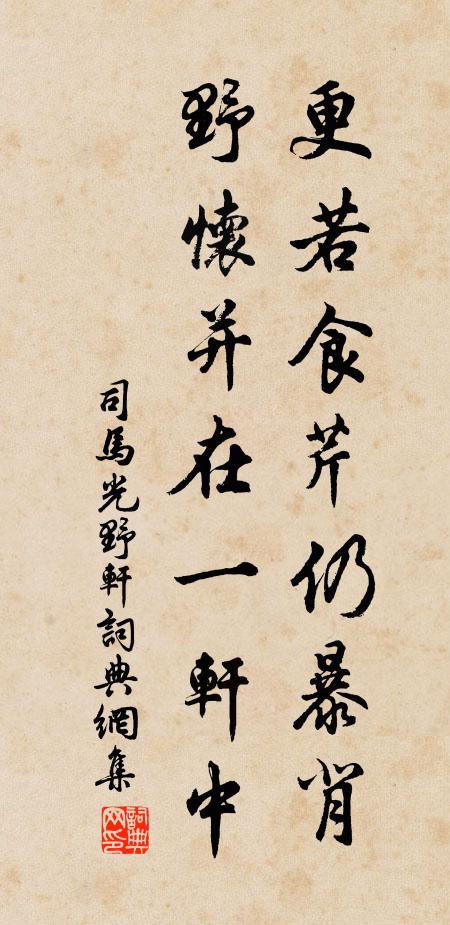 更若食芹仍暴背
野懷并在一軒中
司馬光野軒詞典網集
詞典网印